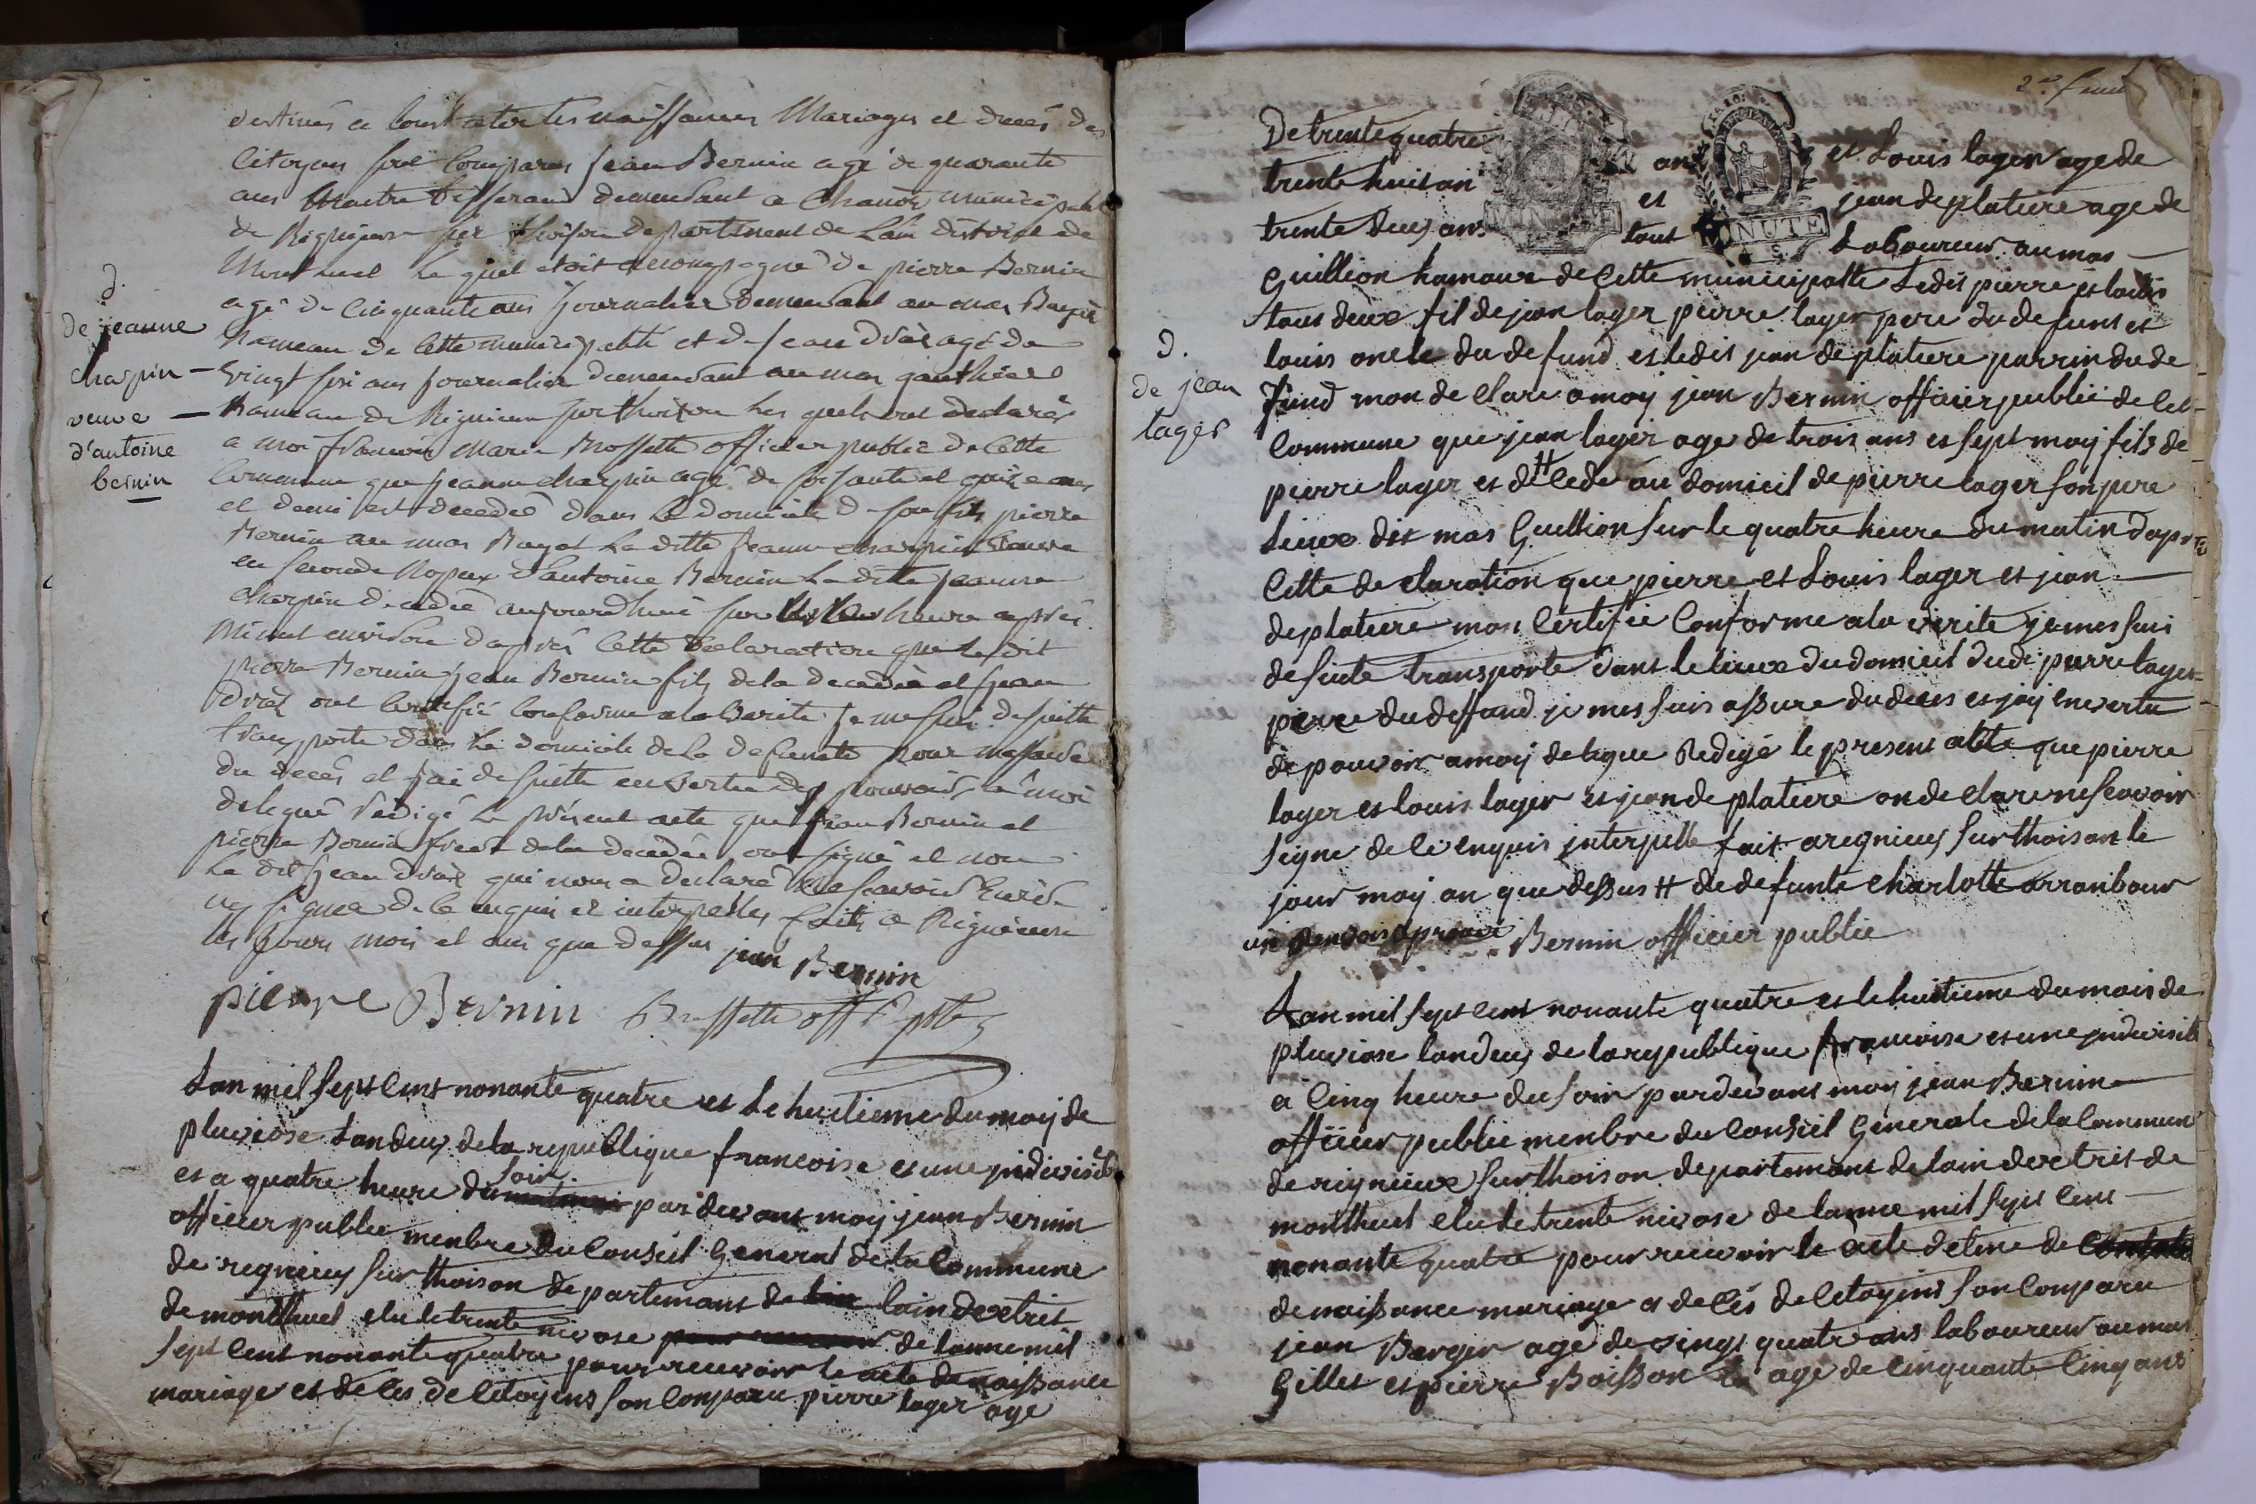 destinés a Constater les naissances Mariages et decés des
Citoyens sont Comparus jean Bernin agé de quarante
ans Maitre tisserand demeurant a Chanoz municipalité
de Rignieux sur thoison departement de Lain district de
Montluel Le quel etoit accompagné de pierre Bernin
agé de Cinquante ans Journalier demeurant au mas Bayet
hameau de Cette municipalité et de jean agé de
Vingt six ans journalier demeurant au mas gauthier
hameau de Rignieux sur thoison Les quels ont declarés
a moi francois Marie Brossette officier public de Cette
Commune que jeanne charpin agé de soisante et quinze ans
et demi est decedée dans Le domicile de son fils pierre
Bernin au mas Bayet La ditte jeanne charpin Veuve
en seconde Nopces d'antoine Bernin La ditte jeanne
charpin decedée aujourdhuÿ sur heure après
Minuit environ d'après Cette declaration que Le dit
pierre Bernin jean Bernin fils de la decedée et jean
ont Certifié Conforme a la Verité je me suis de suitte
transporté dans Le domicile de La defunte pour massurer
du decès et jai de suitte en Vertu des pouvoirs a moi
delegué rédigé Le présent acte que jean Bernin et
pierre Bernin de la decedée ont signé et non
Le dit jean qui nous a declaré ne scavoir Ecrire
ny signer de ce enquis et interpellés faits a Rignieux
les jours mois et ans que dessus jean Bernin
pierre Bernin Brossette off. pblic
d.
de jeanne
charpin
veuve
d'antoine
bernin
Lan mil sept cent nonante quatre et le huitieme du moij de
pluviose Landeux de la republique francoise et une indivisible
et a quatre heure du soir par devant moy jean Bernin
officier publie menbre du Conseil General de la Commune
de regnieux sur thoison de partemant de lain dextrit
de montluel elu le trente nivose de lanne mil
sept cent nonante quatre pour recevoir le acte de naissance
mariage et de ces de Citoyens son Conparu pierre lager age
2e feuil
De trente quatre an et Louis lager age de
trente huit an et jean deplatiere age de
trente deux ans tout Laboureur au mas
Guillion hamaux de Cette municipalte Ledit pierre et louis
tous deux fil de jean lager pierre lager pere du defunt et
louis oncle du defund et ledit jean deplatiere parrin du de
fund mon de clare a moy jean Bernin officier publie de Cet
Commune que jean lager age de trois ans et sept moy fils de
pierre lager et # de Cede au domicil de pierre lager son pere
Lieux dit mas Guillion sur le quatre heure du matin dapres
Cette de claration que pierre et Louis lager et jean
deplatiere mon Certifie Conforme a la virite je mes suis
de suite transporte dans le lieux du domicil dudi pierre lager
piere du deffand je mes suis assure du deces et jay en vertu
de pouvoir a moy delegue Redigé le present acte que pierre
lager et louis lager et jean de platiere on de clare ne scavoir
signe de ce enquis interpelle fait a regnieux sur thoison le
jour moy an que dessus # de defunte Charlotte arranbour
un renvois aprouve Bernin officier publie
d.
de jean
lager
Lan mil sept cent nonante quatre et le huitieme du mois de
pluviose landeux de la republique francoise et une indivisible
a Cinq heure du soir par devant moy jean Bernin
officier publie menbre du Conseil Generale de la Commune
de rignieux sur thoison departemant de lain dextrit de
montluel elu le trente nivose de lanne mil sept cent
nonante quatre pour recevoir le acte detine de Contate
de naissance mariage a de Cés de Citoyens son Conparu
jean Berger age de vingt quatre ans laboureur au mas
Gillet et pierre Boisson age de Cinquante Cinq ans